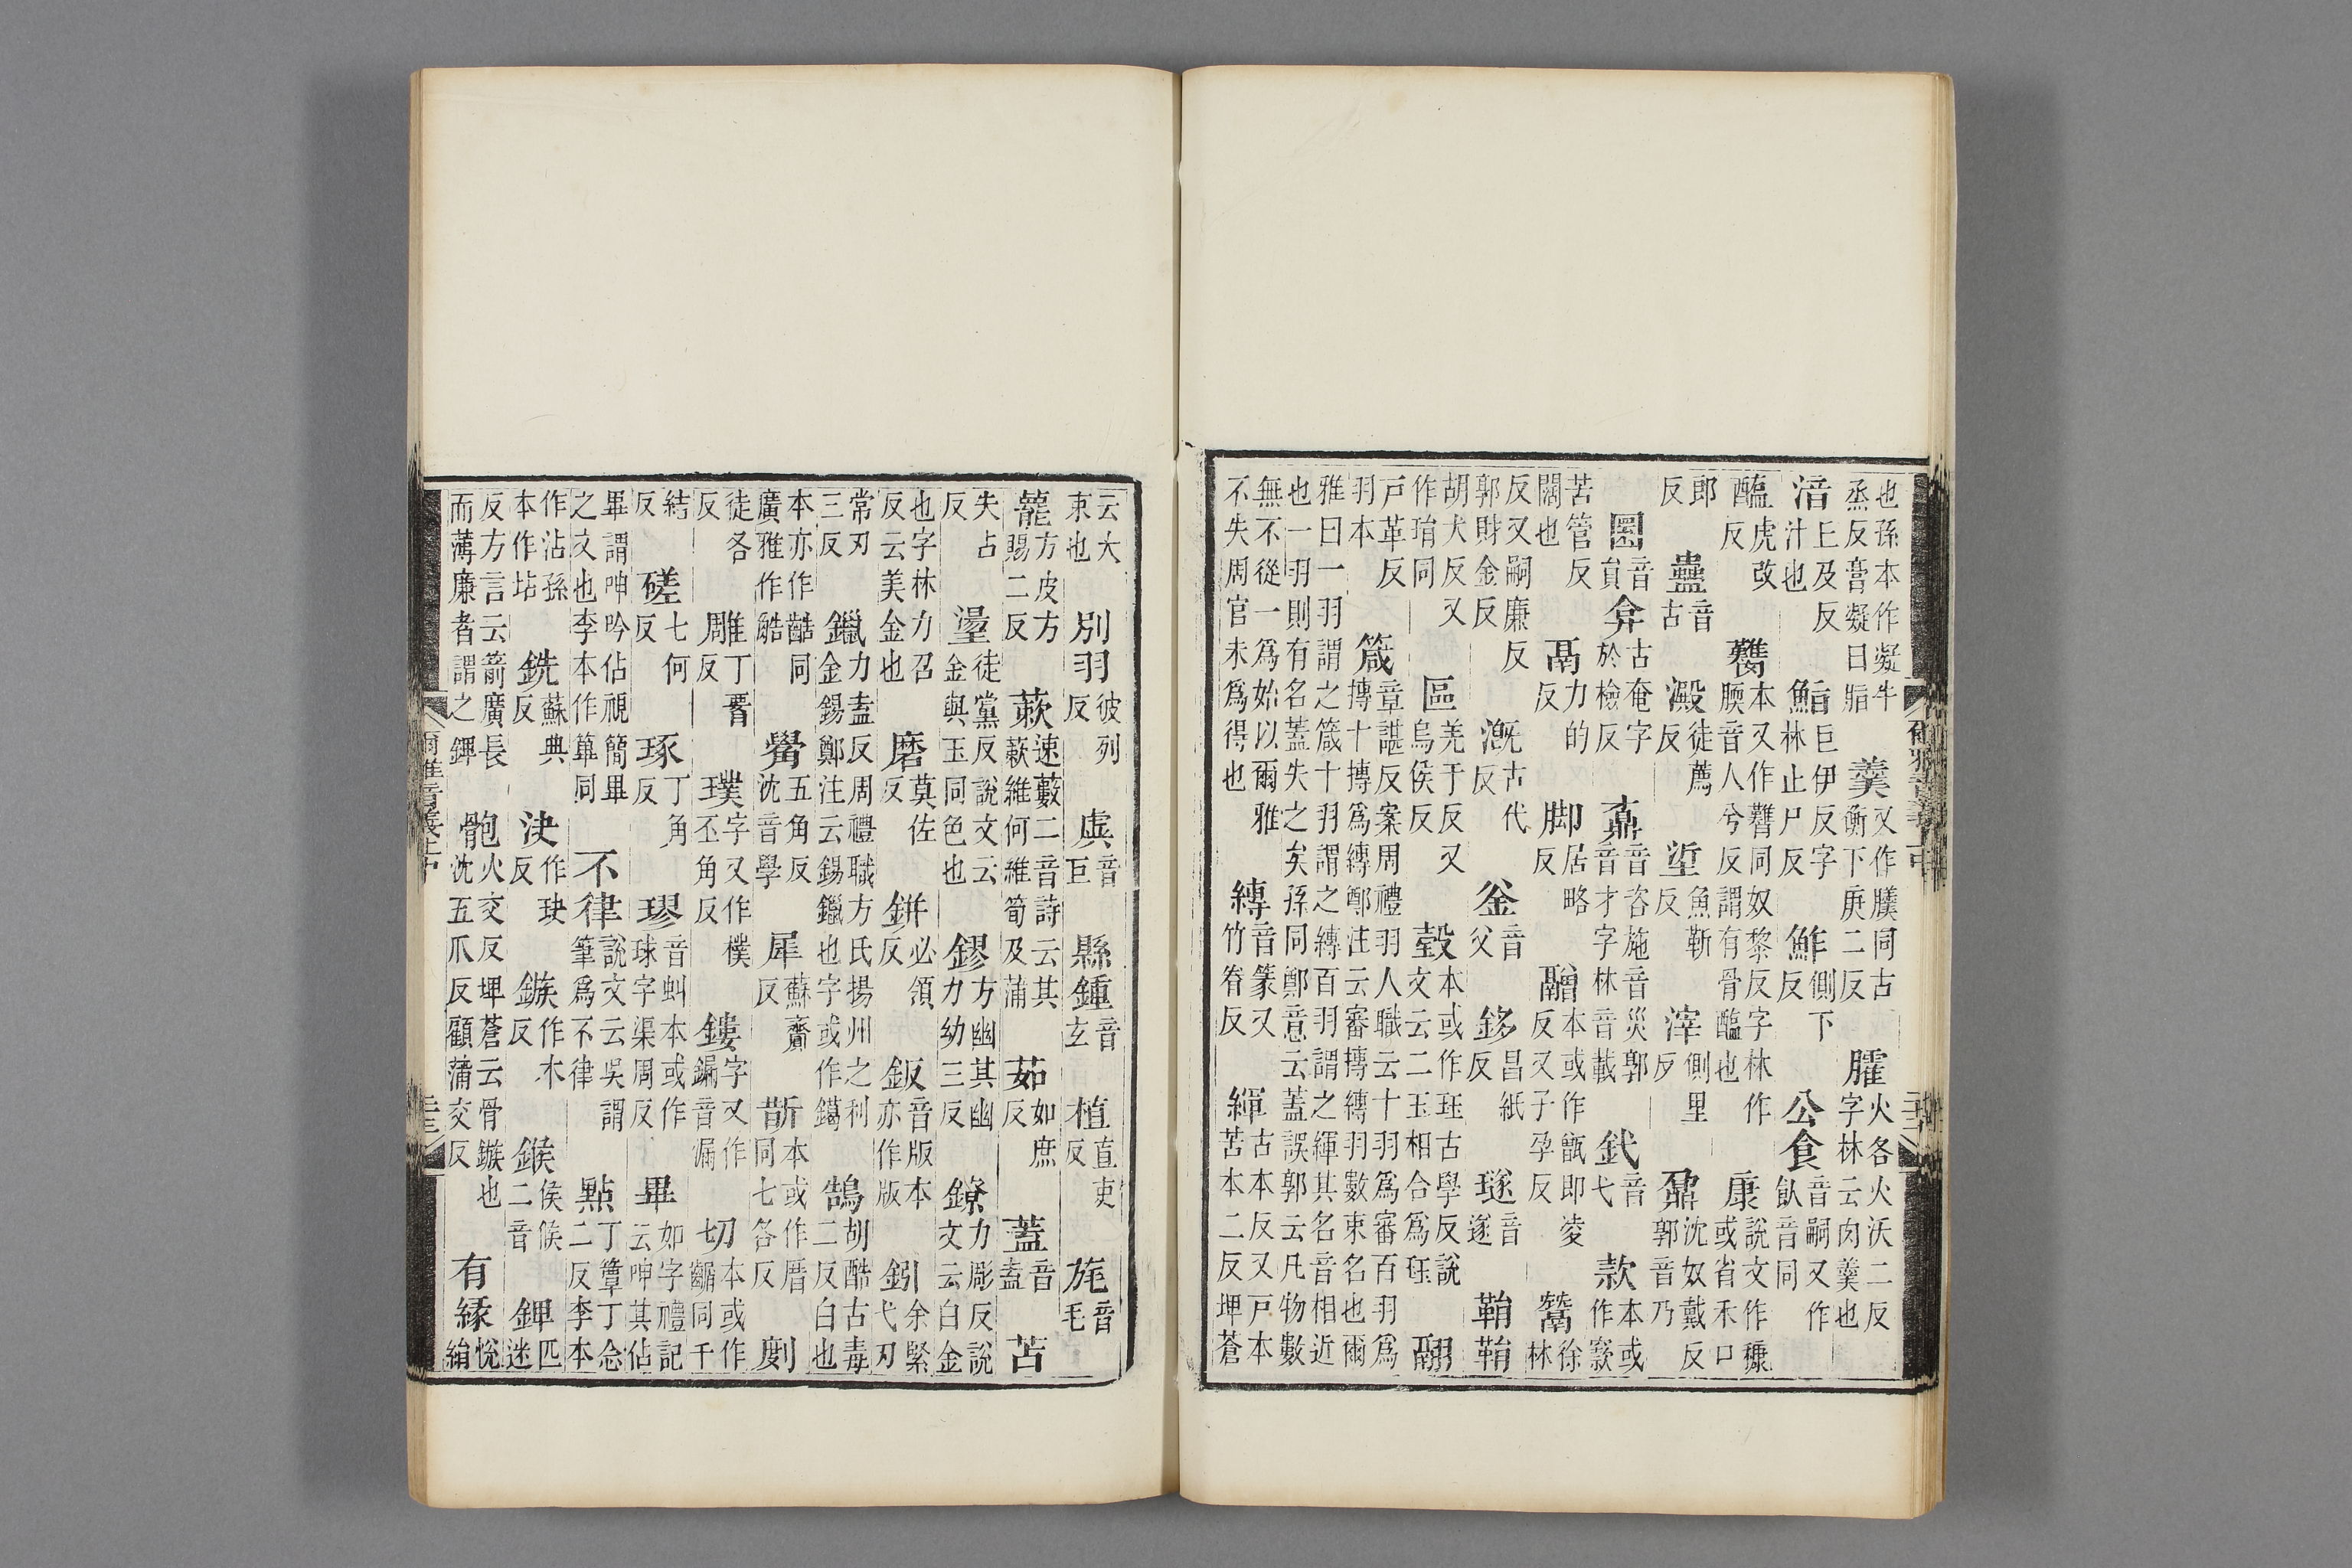 也孫本作凝牛烝反膏凝曰脂 羹又作𩱧同古衡下庚二反 臛火各火沃二反字林云肉羹也
涪上及反汁也 鮨巨伊反字林止尸反 鮓側下反 公食音嗣又作飤音同
醢虎改反 臡本又作䝉同奴黎反字林作腝音人兮反謂有骨醢也 康說文作穅或省禾口
郎反 蠱音古 澱徒薦反 垽魚靳反 滓側里反 鼐沈奴戴反郭音乃
圜音員 弇古奄字於檢反 鼒音咨施音災郭音才字林音載 釴音弋 款本或作窾
苦管反闊也 鬲力的反 脚居略反 䰝本或作甑即凌反又子孕反 鬵徐林
反又嗣廉反郭財金反 溉古代反 釜音父 鉹昌紙反 璲音遂 鞙鞙
胡犬反又作琄同 區羌于反又烏侯反 瑴本或作珏古學反說文云二玉相合為珏 翮
戶革反羽本 箴章諶反案周禮羽人職云十羽為審百羽為摶十摶為縛鄭注云審摶縛羽數束名也爾
雅曰一羽謂之箴十羽謂之縛百羽謂之緷其名音相近也一羽則有名蓋失之矣孫同鄭意云蓋誤郭云凡物數
無不從一為始以爾雅不失周官未為得也 縛音篆又竹眷反 緷古本反又戶本苦本二反埤蒼
云大束也 別羽彼列反 虡音巨 縣鍾音玄 植直吏反 旄音毛
籠方皮方賜二反 蔌速藪二音詩云其蔌維何維筍及蒲 茹如庶反 蓋音盍 苫
失占反 璗徒黨反說文云金與玉同色也 鏐方幽其幽力幼三反 鐐力彫反說文云白金
也字林力召反云美金也 磨莫佐反 鉼必領反 鈑音版本亦作版 釰余緊弋刃
常刃三反 鑞力盍反周禮職方氏揚州之利金錫鄭注云錫鑞也字或作鑞 鵠胡酷古毒二反白也
本亦作䶜同廣雅作觡 觷五角反沈音學 犀蘇齎反 斮本或作厝同七各反 剫
徒各反 雕丁䎸反 璞字又作樸丕角反 鏤字又作鏣音漏 切本或作䶩同千
結反 磋七何反 琢丁角反 璆音虯本或作球字渠周反 畢如字禮記云呻其佔
畢謂呻吟佔視簡畢之文也李本作篳同 不律說文云吳謂筆為不律 點丁簟丁念二反李本
作沾孫本作坫 銑蘇典反 決作玦反 鏃作木反 鍭侯候二音 錍匹迷
反方言云箭廣長而薄廉者謂之錍 骲火交反埤蒼云骨鏃也沈五爪反顧蒲交反 有緣悅絹
爾雅音義上中